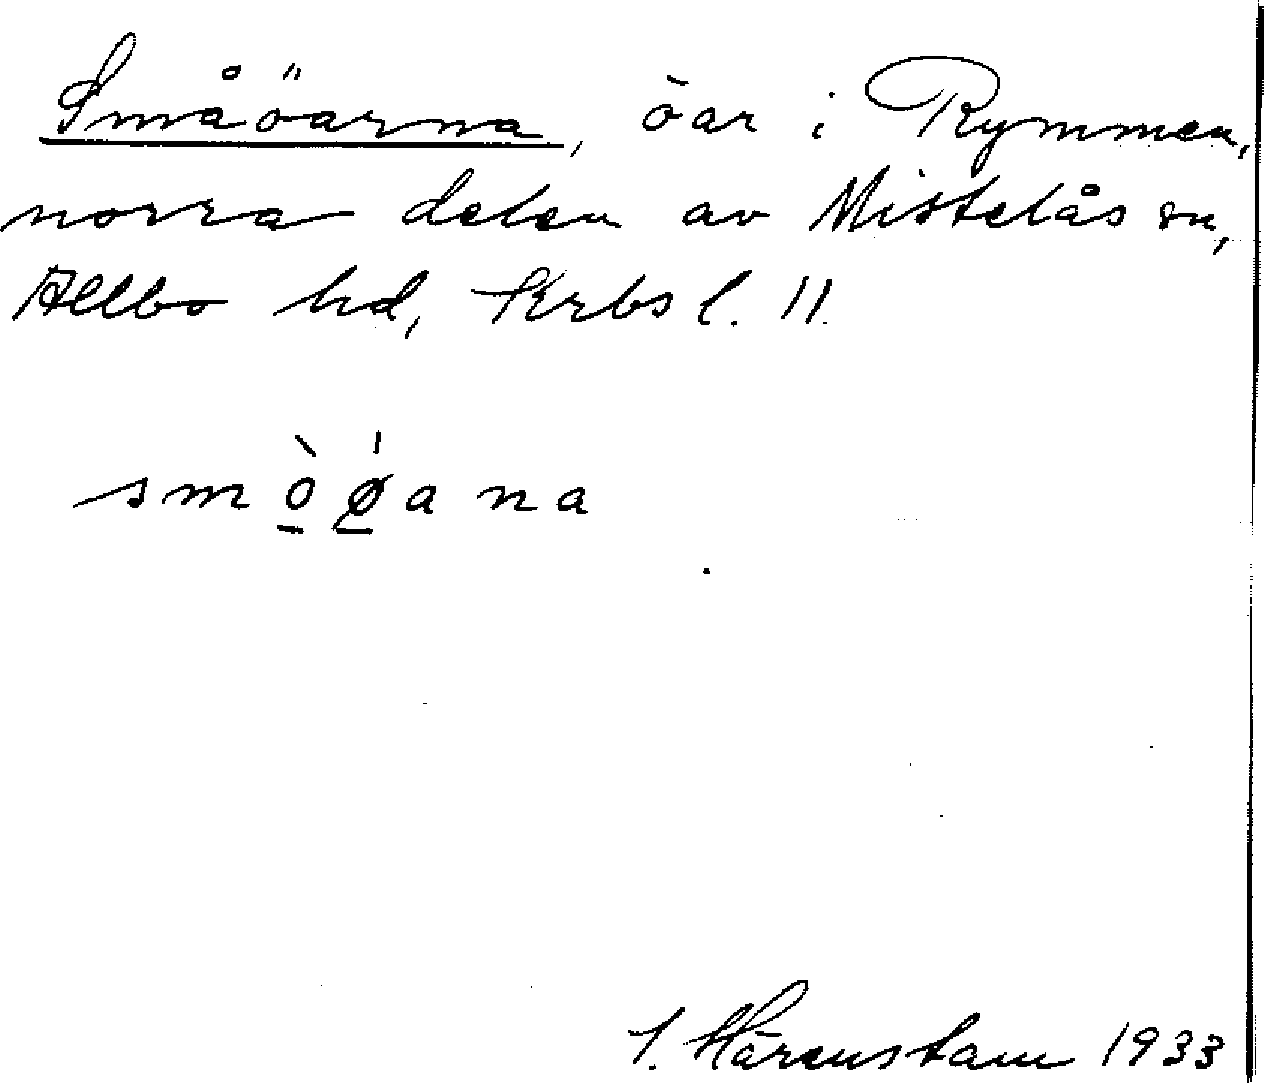 Småöarna, öar i Rymmen,
norra delen av Mistelås sn,
Allbo hd, Krbs l. 11.
smò̱ǿ̱ana
1. Härenstam 1933